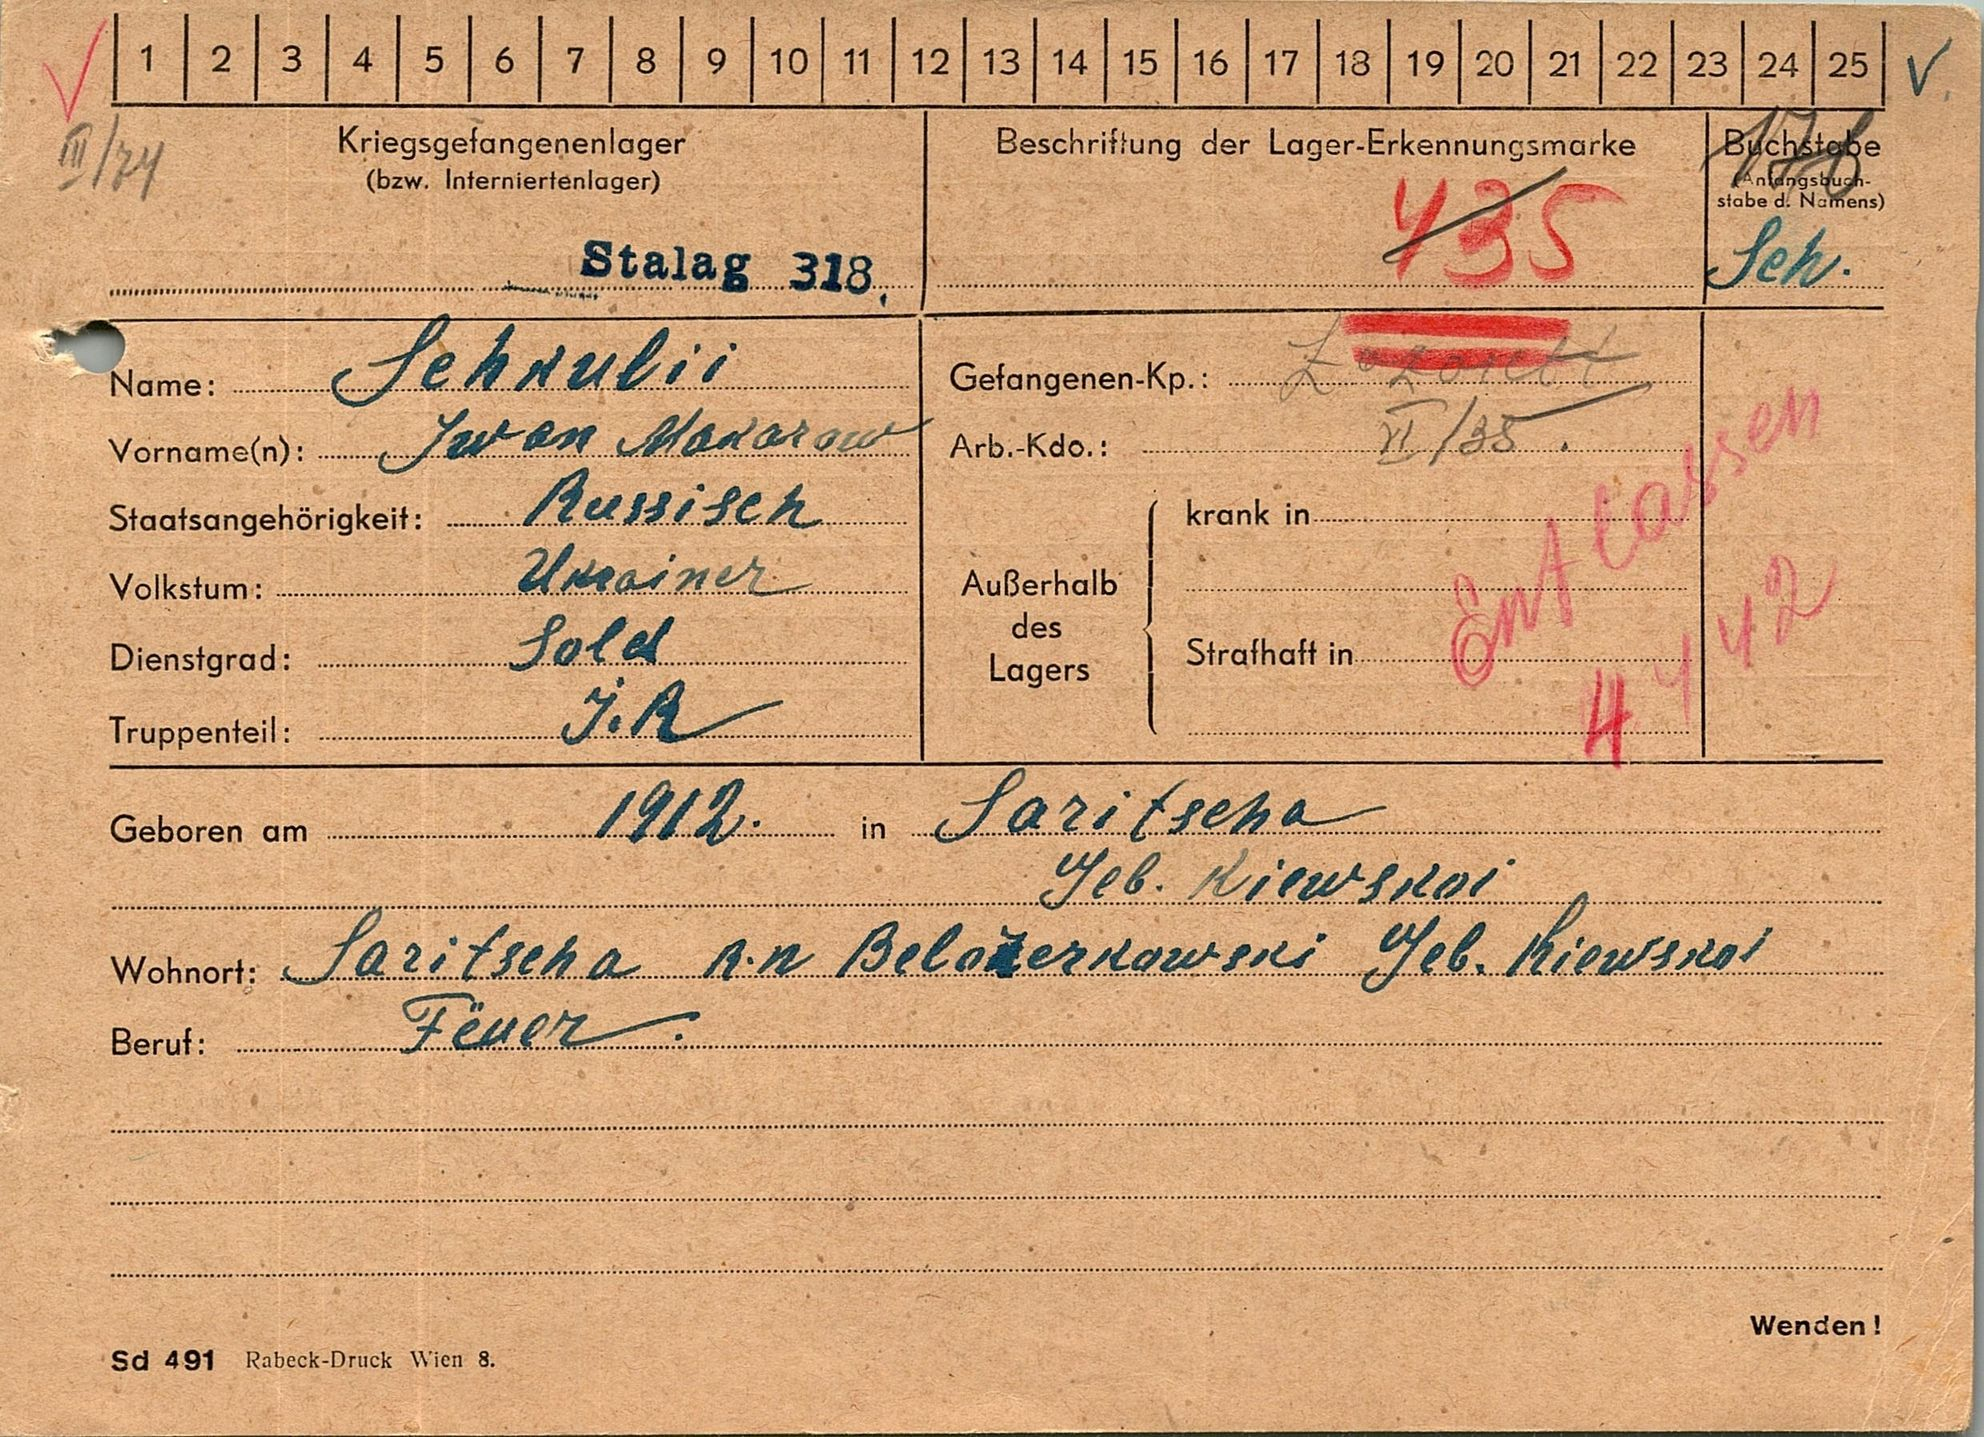 1 2 3 4 5 6 7 8 9 10 11 12 13 14 15 16 17 18 19 20 21 22 23 24 25
III/74
Kriegsgefangenenlager
(bzw. Interniertenlager)
Stalag 318.
Beschriftung der Lager-Erkennungsmarke
435
Buchstabe
(Anfangsbuch-
stabe d. Namens)
Sch.
Name: Schkulii
Vorname(n): Iwan Makarow
Staatsangehörigkeit: Russisch
Volkstum: Ukrainer
Dienstgrad: Sold
Truppenteil: J.R
Gefangenen-Kp.: Lazarett
Arb.-Kdo.: VI/35.
Außerhalb
des
Lagers
krank in
Strafhaft in
Entlassen
4 4 42
Geboren am 1912. in Saritscha
Geb. Kiewskoi
Wohnort: Saritscha R.n Belozerkowski Geb. Kiewskoi
Beruf:
Wenden!
Sd 491 Rabeck-Druck Wien 8.